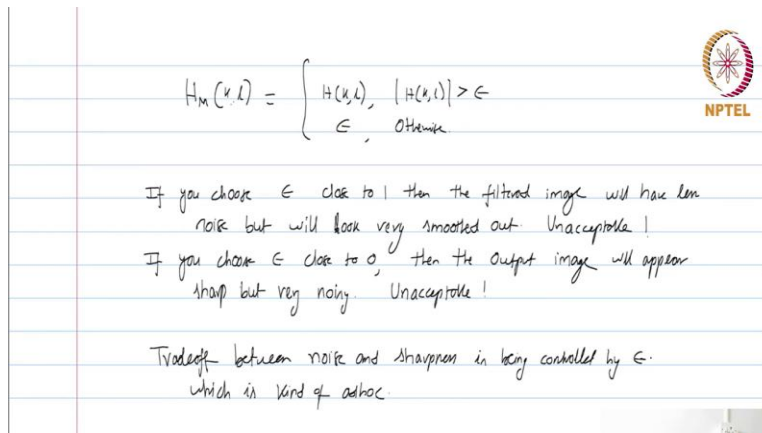 H_M(k,l) = { H(k,l), |H(k,l)| > ∈
∈, Otherwise.
NPTEL
If you choose ∈ close to 1 then the filtered image will have less
noise but will look very smoothed out. Unacceptable!
If you choose ∈ close to 0, then the output image will appear
sharp but very noisy. Unacceptable!
Tradeoff between noise and sharpness is being controlled by ∈.
which is kind of adhoc.